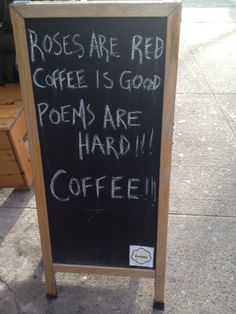 ROSES ARE RED
COFFEE IS GOOD
POEMS ARE
HARD!!!
COFFEE!!!